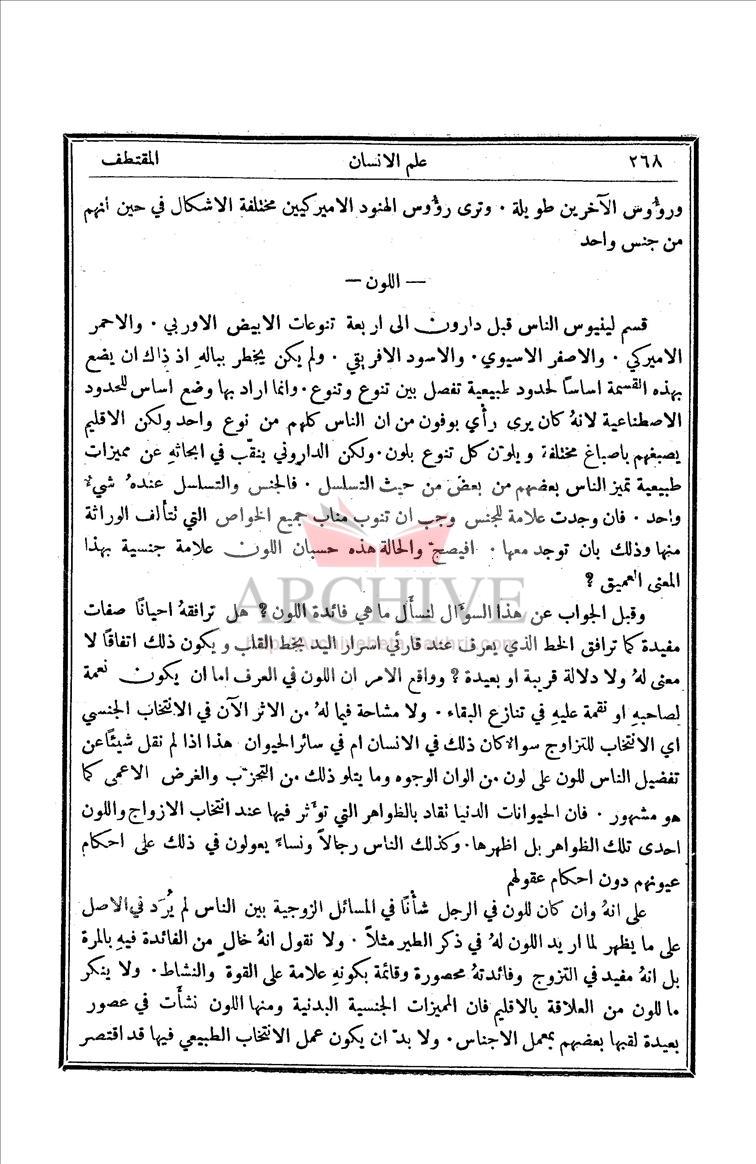 ٢٦٨ علم الانسان المقتطف
ورؤوس الآخرين طويلة ٠ وترى رؤوس الهنود الاميركيين مختلفة الاشكال في حين انهم
من جنس واحد
— اللون —
قسم لينيوس الناس قبل دارون الى اربعة تنوعات الابيض الاوربي ٠ والاحمر
الاميركي ٠ والاصفر الاسيوي ٠ والاسود الافريقي ٠ ولم يكن يخطر بباله اذ ذاك ان يضع
بهذه القسمة اساساً لحدود طبيعية تفصل بين تنوع وتنوع ٠ وانما اراد بها وضع اساس للحدود
الاصطناعية لانهُ كان يرى رأي بوفون من ان الناس كلهم من نوع واحد ولكن الاقليم
يصبغهم باصباغ مختلفة ويلون كل تنوع بلون ٠ ولكن الداروني ينقّب في ابحاثهِ عن مميزات
طبيعية تميز الناس بعضهم من بعض من حيث التسلسل ٠ فالجنس والتسلسل عندهُ شيءٌ
واحد ٠ فان وجدت علامة للجنس وجب ان تنوب مناب جميع الخواص التي نتألف الوراثة
منها وذلك بان توجد معها ٠ افيصحّ والحالة هذه حسبان اللون علامة جنسية بهذا
المعنى العميق ?
وقبل الجواب عن هذا السؤال لنسأل ما هي فائدة اللون ? هل ترافقهُ احياناً صفات
مفيدة كما ترافق الخط الذي يعرف عند قارئي اسرار اليد بخط القلب ويكون ذلك اتفاقاً لا
معنى لهُ ولا دلالة قريبة او بعيدة ? وواقع الامر ان اللون في العرف اما ان يكون نعمة
لصاحبهِ او نقمة عليهِ في تنازع البقاء ٠ ولا مشاحة فيما لهُ من الاثر الآن في الانتخاب الجنسي
اي الانتخاب للتزاوج سواءٌ كان ذلك في الانسان ام في سائر الحيوان هذا اذا لم نقل شيئاً عن
تفضيل الناس للون على لون من الوان الوجوه وما يتلو ذلك من التحزّب والغرض الاعمى كما
هو مشهور ٠ فان الحيوانات الدنيا نقاد بالظواهر التي تؤثر فيها عند انتخاب الازواج واللون
احدى تلك الظواهر بل اظهرها ٠ وكذلك الناس رجالاً ونساءً يعولون في ذلك على احكام
عيونهم دون احكام عقولهم
على انهُ وان كان للون في الرجل شأناً في المسائل الزوجية بين الناس لم يُرَد في الاصل
على ما يظهر لما اريد اللون لهُ في ذكر الطير مثلاً ٠ ولا نقول انهُ خالٍ من الفائدة فيهِ بالمرة
بل انهُ مفيد في التزوج وفائدتهُ محصورة وقائمة بكونهِ علامة على القوة والنشاط ٠ ولا ينكر
ما للون من العلاقة بالاقليم فان المميزات الجنسية البدنية ومنها اللون نشأت في عصور
بعيدة لقبها بعضهم بمعمل الاجناس ٠ ولا بدّ ان يكون عمل الانتخاب الطبيعي فيها قد اقتصر
ARCHIVE
http://Archivebeta.Sakhrit.com